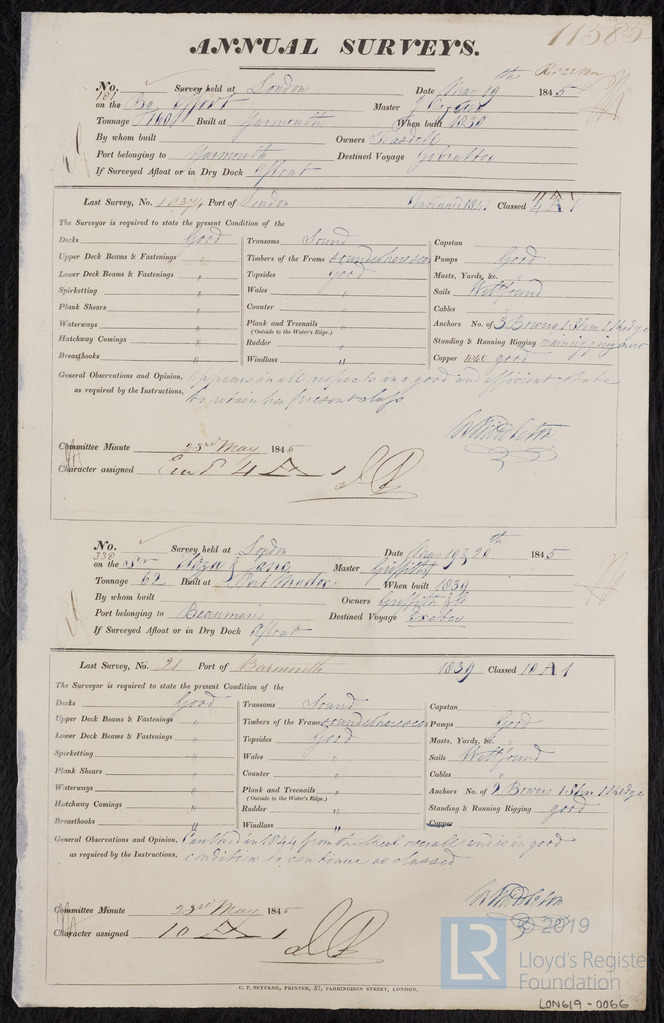 11585
ANNUAL SURVEYS.
No. 181 Survey held at London Date May 19th 1845 Rec 22 May
on the Bq Effort Master J
Tonnage Built at Yarmouth When built 1838
By whom built Owners Teasdell
Port belonging to Yarmouth Destined Voyage Gibraltar
If Surveyed Afloat or in Dry Dock Afloat
Last Survey, No. 10374 Port of London Continued 184 Classed 4 A 1
The Surveyor is required to state the present Condition of the
Decks Good Transoms Sound Capstan
Upper Deck Beams & Fastenings " Timbers of the Frame sound where seen Pumps Good
Lower Deck Beams & Fastenings " Topsides Good Masts, Yards, &c.
Spirketting " Wales " Sails Well found
Plank Shears " Counter " Cables
Waterways " Plank and Treenails " Anchors No. of 3 Bowers 1 Strm 1 Kedge
(Outside to the Water's Edge.)
Hatchway Comings " Rudder " Standing & Running Rigging main rigging new
Breasthooks " Windlass " Copper good
General Observations and Opinion, Appears in all respects in a good and efficient state
as required by the Instructions, to retain her present class
W Middleton
Committee Minute 23rd May 1845
Character assigned Cont 4 A 1
No. 338 Survey held at London Date May 19 & 20th 1845
on the Sr Eliza & Jane Master Griffiths
Tonnage 62 Built at Port Madoc When built 1839
By whom built Owners Griffith & Co
Port belonging to Beaumaris Destined Voyage Exeter
If Surveyed Afloat or in Dry Dock Afloat
Last Survey, No. 21 Port of Barmouth 1839 Classed 10 A 1
The Surveyor is required to state the present Condition of the
Decks Good Transoms Sound Capstan
Upper Deck Beams & Fastenings " Timbers of the Frame sound where seen Pumps Good
Lower Deck Beams & Fastenings " Topsides Good Masts, Yards, &c.
Spirketting " Wales " Sails Well found
Plank Shears " Counter " Cables
Waterways " Plank and Treenails " Anchors No. of 2 Bowers 1 Strm 1 Kedge
(Outside to the Water's Edge.)
Hatchway Comings " Rudder " Standing & Running Rigging good
Breasthooks " Windlass " Copper
General Observations and Opinion, Caulked in 1844 from the keel overall and is in good
as required by the Instructions, condition to continue as classed
W Middleton
Committee Minute 23rd May 1845
Character assigned 10 A 1
C. F. SEYFANG, PRINTER, 57, FARRINGDON STREET, LONDON.
LR
© 2019
Lloyd's Register
Foundation
LON619-0066